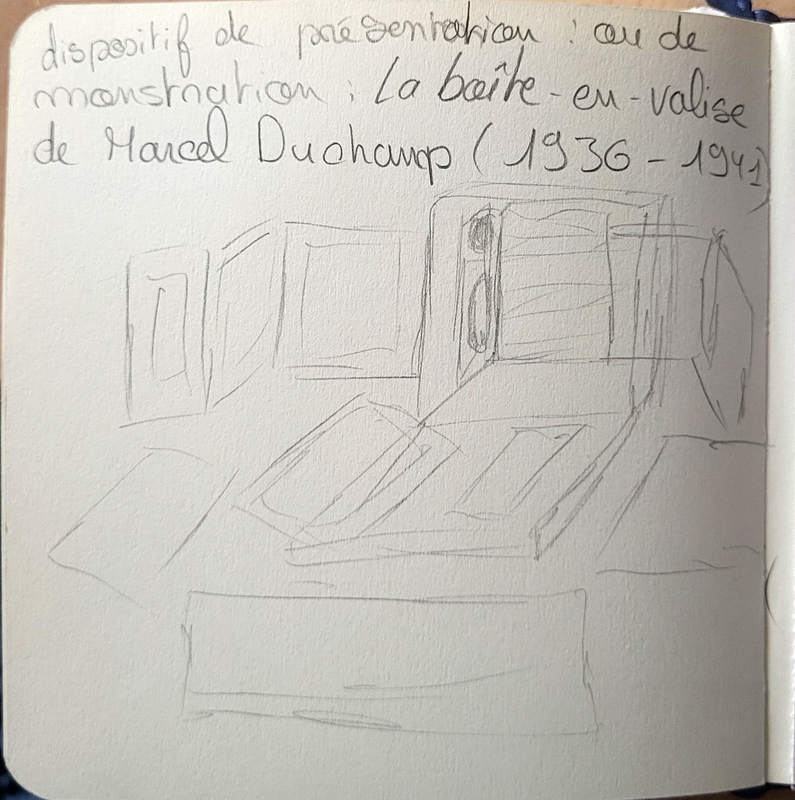 dispositif de présentation : ou de
monstration : La boîte-en-valise
de Marcel Duchamp (1936-1941)